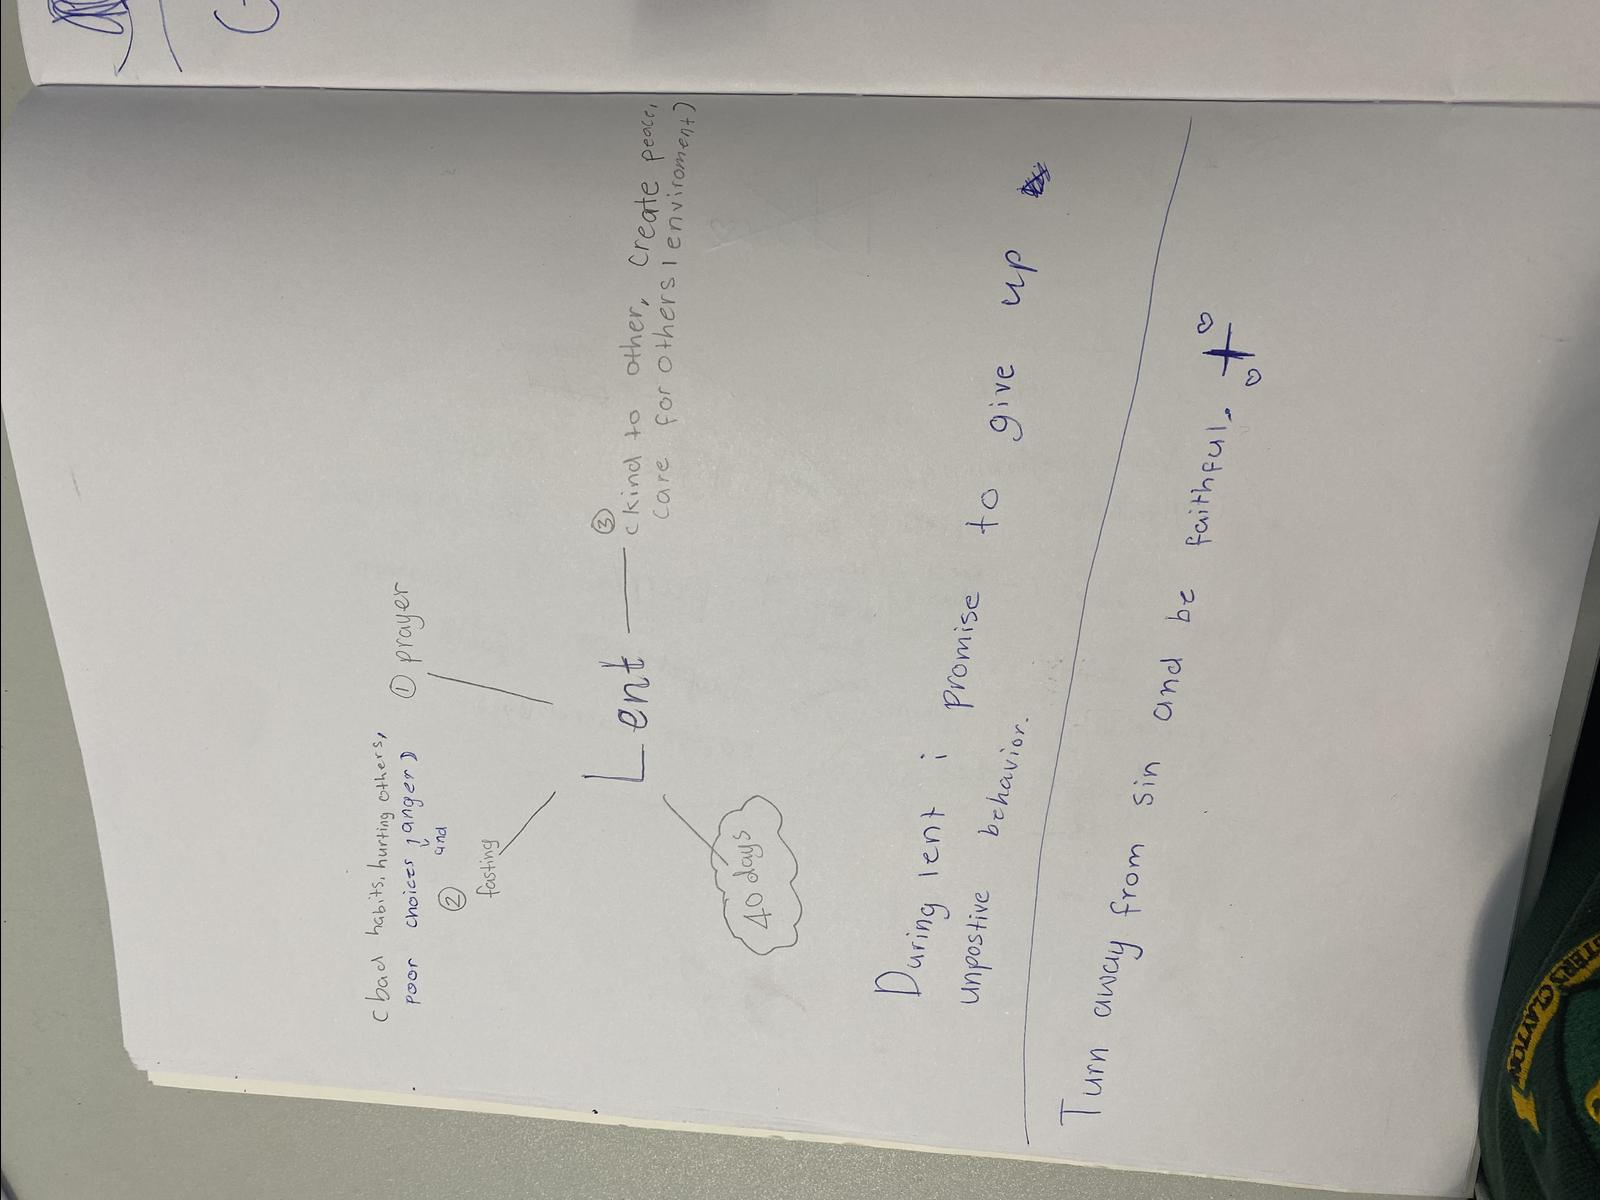 (bad habits, hurting others,
poor choices, anger)
and
① prayer
②
fasting
Lent
③
(kind to other, Create peace,
care for others / enviroment)
40 days
During lent i promise to give up
unpostive behavior.
Turn away from sin and be faithful.
CLAYTON